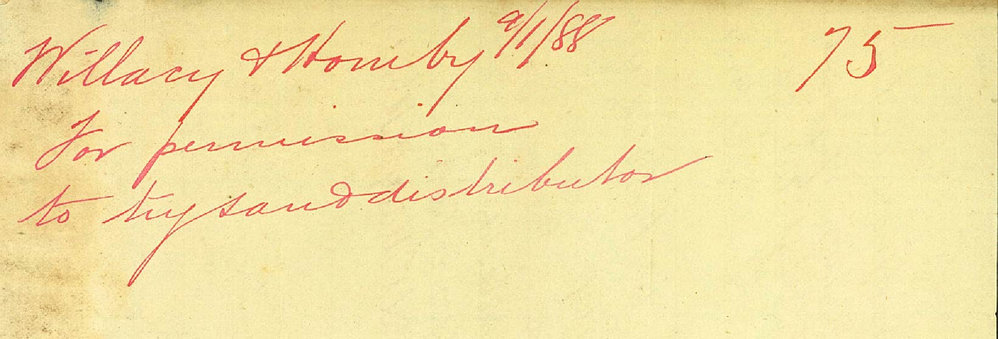 Willacy & Hornby 9/1/88 75
For permission
to try sand distributor